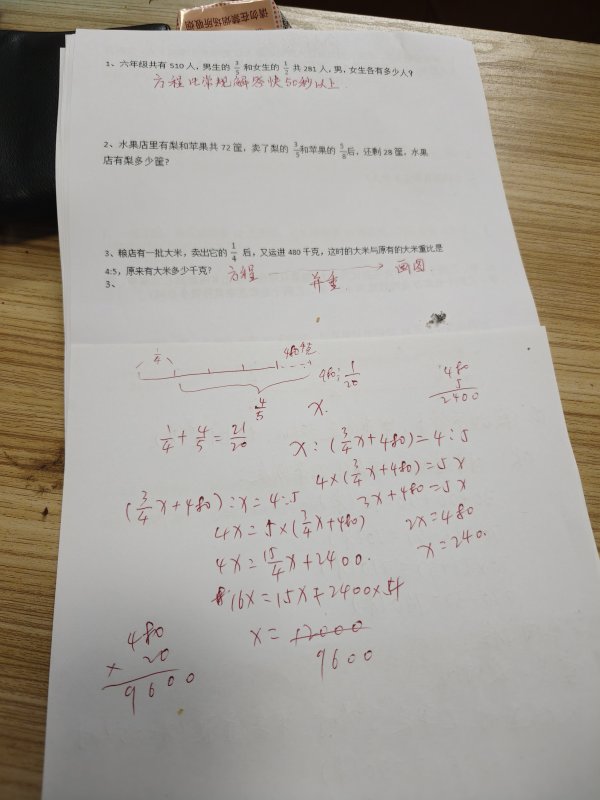 请勿在禁烟场所吸烟
1、六年级共有 510 人，男生的 3/5 和女生的 1/2 共 281 人，男，女生各有多少人？
方程比常规解答快50秒以上.
2、水果店里有梨和苹果共 72 筐，卖了梨的 3/5 和苹果的 5/8 后，还剩 28 筐，水果
店有梨多少筐？
3、粮店有一批大米，卖出它的 1/4 后，又运进 480 千克，这时的大米与原有的大米重比是
4:5，原来有大米多少千克？ 方程 → 画图.
并重.
3、
1/4
480千克
480÷1/20
4/5
x.
480
5
2400
1/4+4/5=21/20
x:(3/4x+480)=4:5
4×(3/4x+480)=5x
3x+480=5x
2x=480
x=240.
(3/4x+480):x=4:5
4x=5×(3/4x+480)
4x=15/4x+2400.
16x=15x+2400×4
x=12000
9600
480
× 20
9600